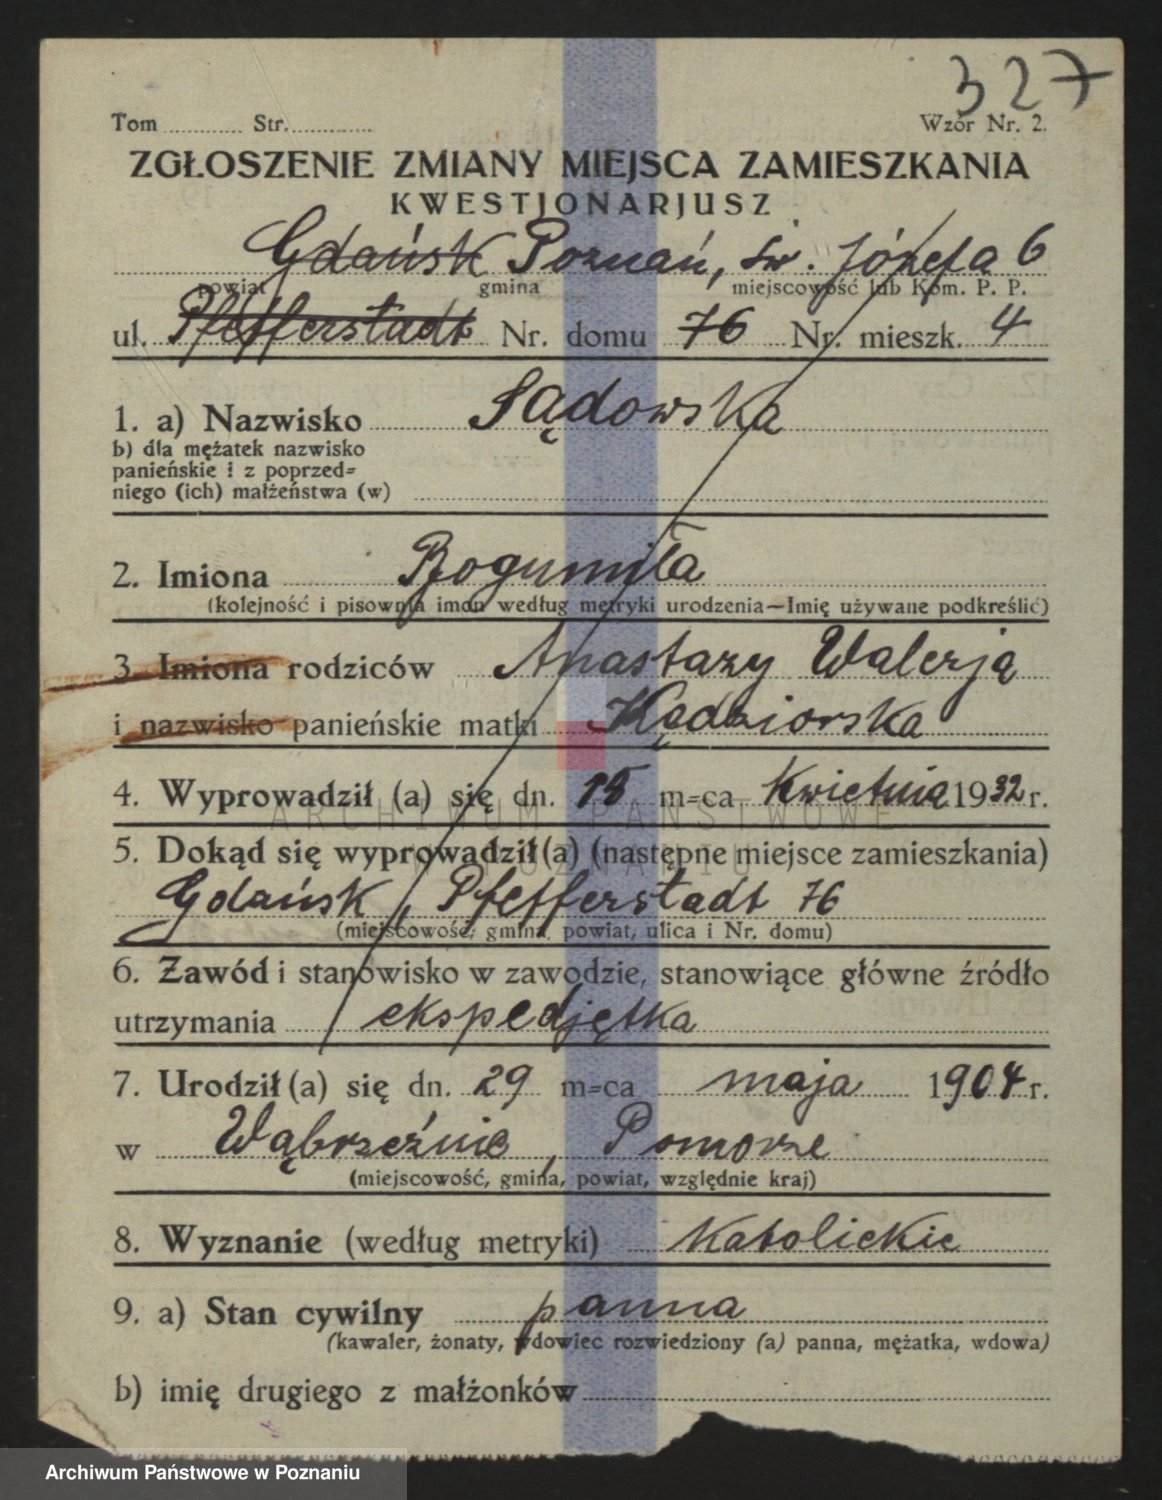 327
Tom ............ Str. ............... Wzór Nr. 2.
ZGŁOSZENIE ZMIANY MIEJSCA ZAMIESZKANIA
KWESTJONARJUSZ
Gdańsk Poznań, św. Józefa 6
powiat gmina miejscowość lub Kom. P. P.
ul. Pfefferstadt Nr. domu 76 Nr. mieszk. 4
1. a) Nazwisko Sądowska
b) dla mężatek nazwisko
panieńskie i z poprzed=
niego (ich) małżeństwa (w)
2. Imiona Bogumiła
(kolejność i pisownia imon według metryki urodzenia—Imię używane podkreślić)
3. Imiona rodziców Anastazy Walerją
i nazwisko panieńskie matki Kędziorska
4. Wyprowadził (a) się dn. 15 m=ca Kwietnia 1932 r.
ARCHIWUM PAŃSTWOWE
5. Dokąd się wyprowadził(a) (następne miejsce zamieszkania)
W POZNANIU
Gdańsk, Pfefferstadt 76
(miejscowość, gmina, powiat, ulica i Nr. domu)
6. Zawód i stanowisko w zawodzie, stanowiące główne źródło
utrzymania ekspedjętka
7. Urodził(a) się dn. 29 m=ca maja 1904 r.
w Wąbrzeźnie, Pomorze
(miejscowość, gmina, powiat, względnie kraj)
8. Wyznanie (według metryki) Katolickie
9. a) Stan cywilny panna
(kawaler, żonaty, wdowiec rozwiedziony (a) panna, mężatka, wdowa)
b) imię drugiego z małżonków
Archiwum Państwowe w Poznaniu